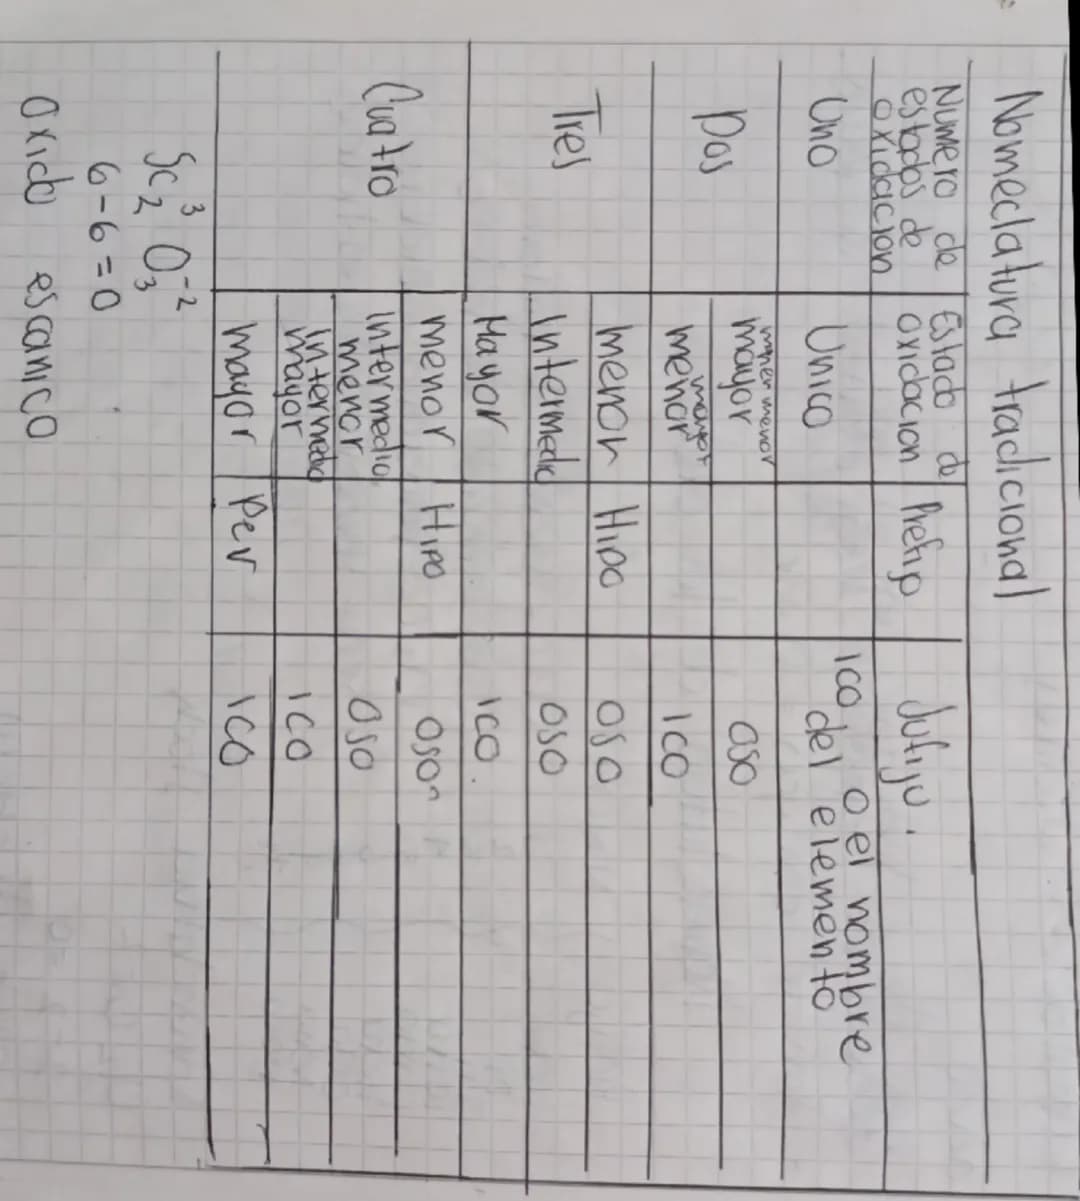 Nomeclatura tradicional
Numero de estados de oxidacion Estado de oxidacion Prefijo Sufijo.
Uno Unico ico, o el nombre del elemento
Dos menor mayor oso
mayor menor ico
Tres menor Hipo oso
Intermedio oso
Mayor ico.
Cuatro menor Hipo oso
Intermedio menor oso
intermedio mayor ico
mayor Per ico
Sc₂³ O₃⁻²
6-6=0
Oxido escanico